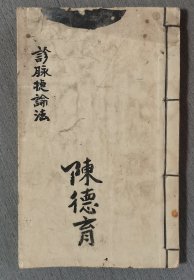 診脉捷論法
陳德育